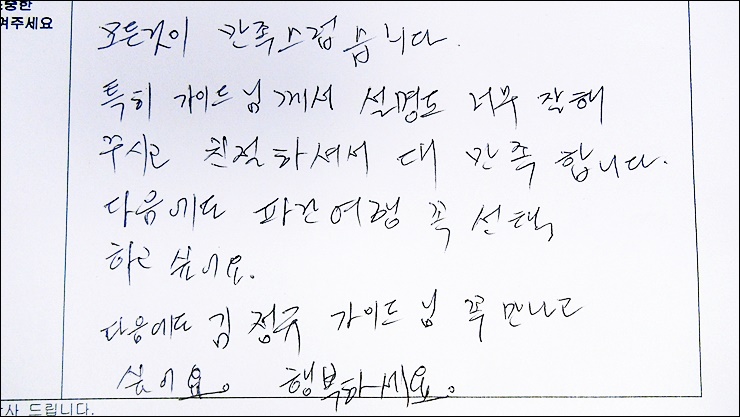 중한
여주세요
모든것이 만족스럽습니다.
특히 가이드님께서 설명도 너무 잘해
주시고 친절하셔서 대 만족 합니다.
다음에도 파란여행 꼭 선택
하고 싶어요.
다음에도 김정규 가이드님 꼭 만나고
싶어요. 행복하세요.
사 드립니다.